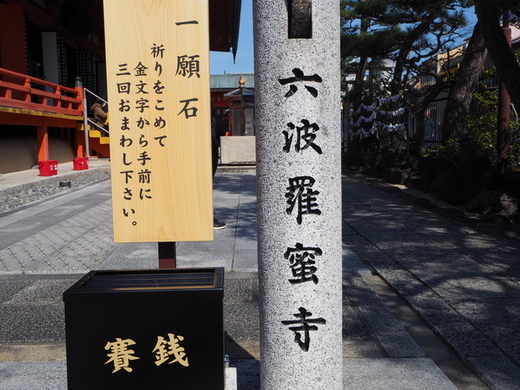 六波羅蜜寺
一願石
祈りをこめて
金文字から手前に
三回おまわし下さい。
賽銭